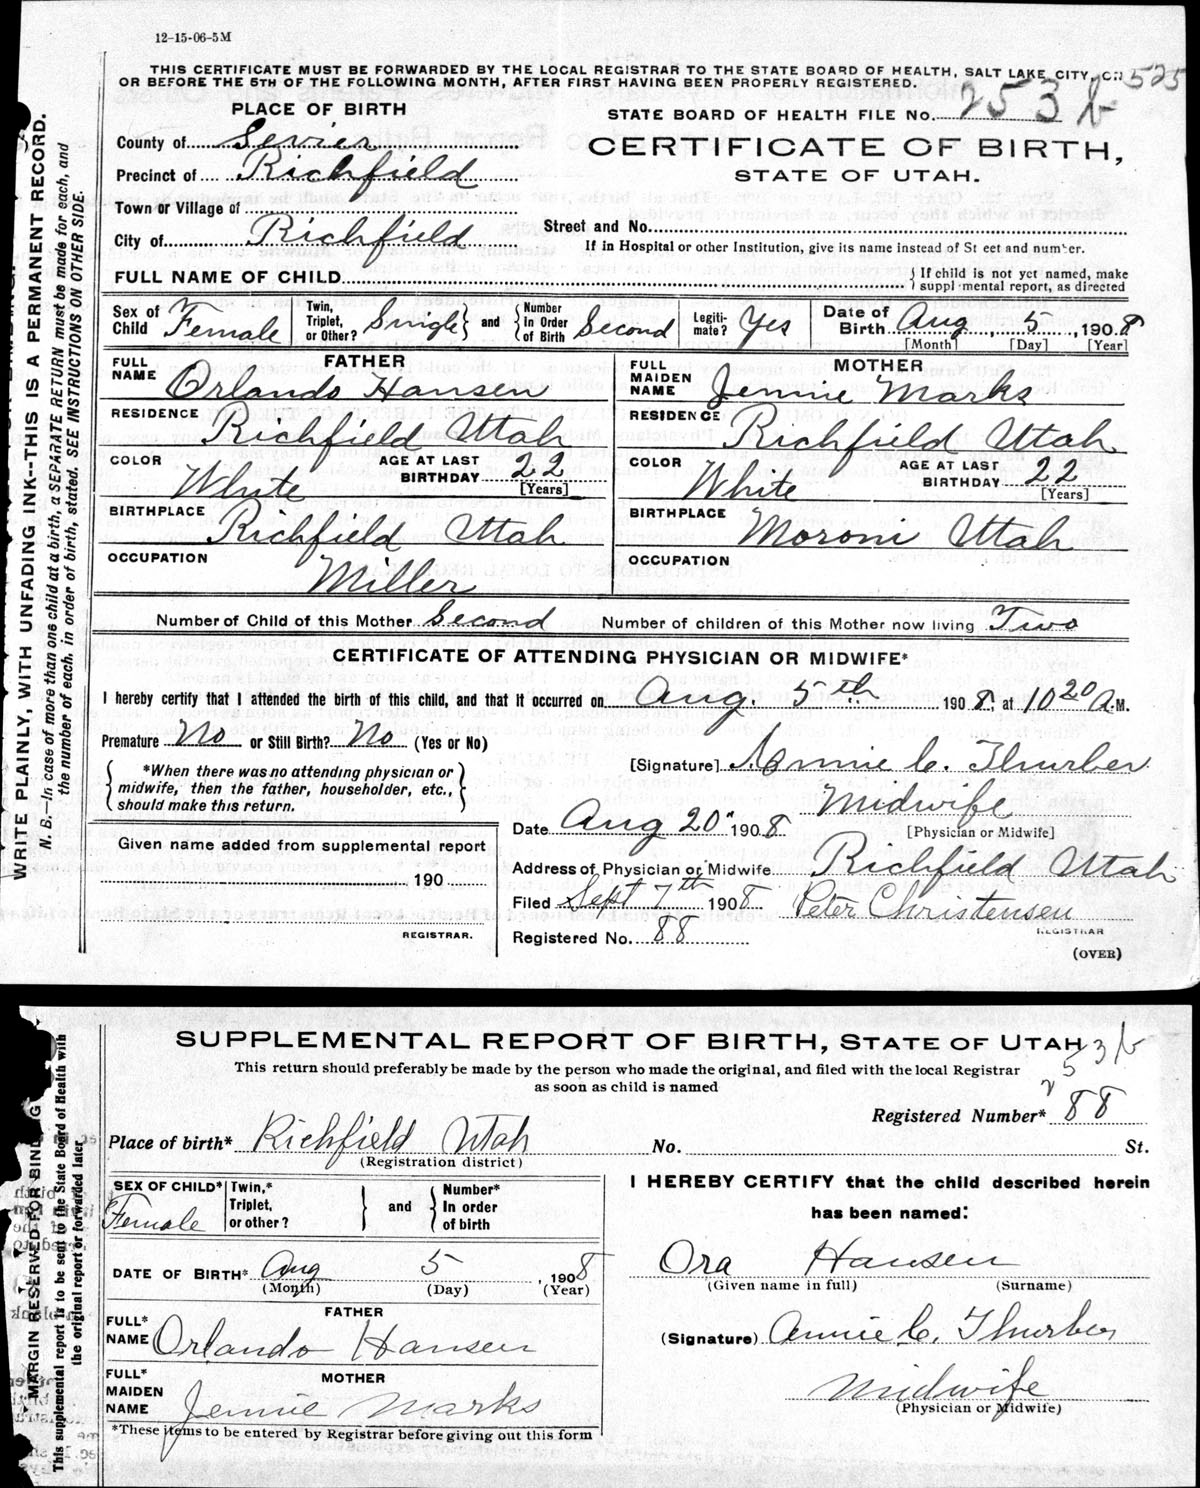 12-15-06-5M
THIS CERTIFICATE MUST BE FORWARDED BY THE LOCAL REGISTRAR TO THE STATE BOARD OF HEALTH, SALT LAKE CITY, ON
OR BEFORE THE 5TH OF THE FOLLOWING MONTH, AFTER FIRST HAVING BEEN PROPERLY REGISTERED.
525
PLACE OF BIRTH
STATE BOARD OF HEALTH FILE No. 253 b
County of Sevier
CERTIFICATE OF BIRTH,
Precinct of Richfield
STATE OF UTAH.
Town or Village of
Street and No.
City of Richfield
If in Hospital or other Institution, give its name instead of St eet and number.
FULL NAME OF CHILD
If child is not yet named, make
suppl mental report, as directed
Sex of Child Female
Twin, Triplet, or Other? Single and Number In Order of Birth Second
Legiti-mate? Yes
Date of Birth Aug 5, 1908
[Month] [Day] [Year]
FATHER
MOTHER
FULL NAME Orlando Hansen
FULL MAIDEN NAME Jennie Marks
RESIDENCE Richfield Utah
RESIDENCE Richfield Utah
COLOR White AGE AT LAST BIRTHDAY 22 [Years]
COLOR White AGE AT LAST BIRTHDAY 22 [Years]
BIRTHPLACE Richfield Utah
BIRTHPLACE Moroni Utah
OCCUPATION Miller
OCCUPATION
Number of Child of this Mother Second Number of children of this Mother now living Two
CERTIFICATE OF ATTENDING PHYSICIAN OR MIDWIFE*
I hereby certify that I attended the birth of this child, and that it occurred on Aug. 5th 1908, at 10 20 A.M.
Premature No or Still Birth? No (Yes or No)
*When there was no attending physician or
midwife, then the father, householder, etc.,
should make this return.
[Signature] Annie C. Thurber
Midwife
Date Aug 20" 1908
[Physician or Midwife]
Given name added from supplemental report
190
REGISTRAR.
Address of Physician or Midwife Richfield Utah
Filed Sept 7th 1908 Peter Christensen
REGISTRAR
Registered No. 88
(OVER)
WRITE PLAINLY, WITH UNFADING INK--THIS IS A PERMANENT RECORD.
N. B.—In case of more than one child at a birth, a SEPARATE RETURN must be made for each, and
the number of each, in order of birth, stated. SEE INSTRUCTIONS ON OTHER SIDE.
SUPPLEMENTAL REPORT OF BIRTH, STATE OF UTAH
253 b
This return should preferably be made by the person who made the original, and filed with the local Registrar
as soon as child is named
Registered Number* 88
Place of birth* Richfield Utah No. St.
(Registration district)
SEX OF CHILD* Female
Twin,* Triplet, or other? and Number* In order of birth
I HEREBY CERTIFY that the child described herein
has been named:
Ora Hansen
(Given name in full) (Surname)
DATE OF BIRTH* Aug 5, 1908
(Month) (Day) (Year)
FATHER
FULL* NAME Orlando Hansen
(Signature) Annie C. Thurber
MOTHER
FULL* MAIDEN NAME Jennie Marks
Midwife
(Physician or Midwife)
*These items to be entered by Registrar before giving out this form
MARGIN RESERVED FOR BINDING
This supplemental report is to be sent to the State Board of Health with
the original report or forwarded later